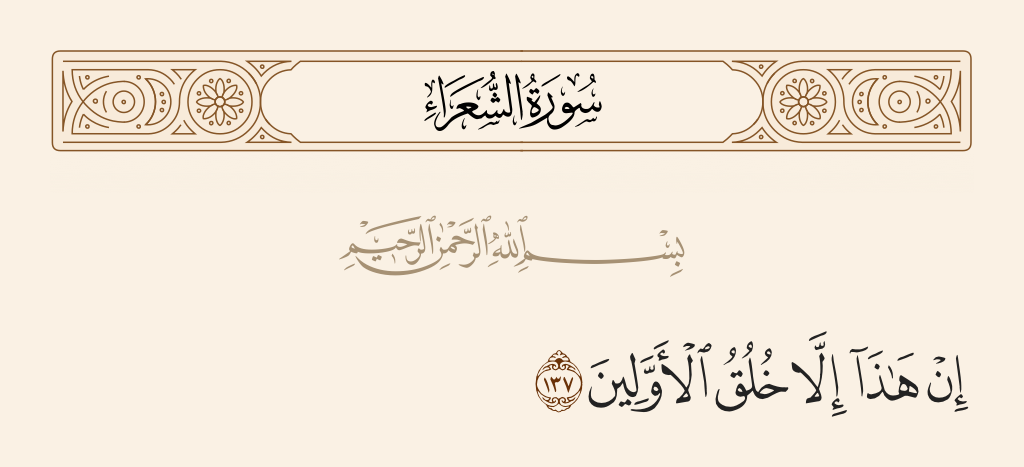 سُورَةُ الشُّعَرَاءِ
بِسْمِ ٱللَّهِ ٱلرَّحْمَٰنِ ٱلرَّحِيمِ
إِنْ هَٰذَآ إِلَّا خُلُقُ ٱلْأَوَّلِينَ ١٣٧